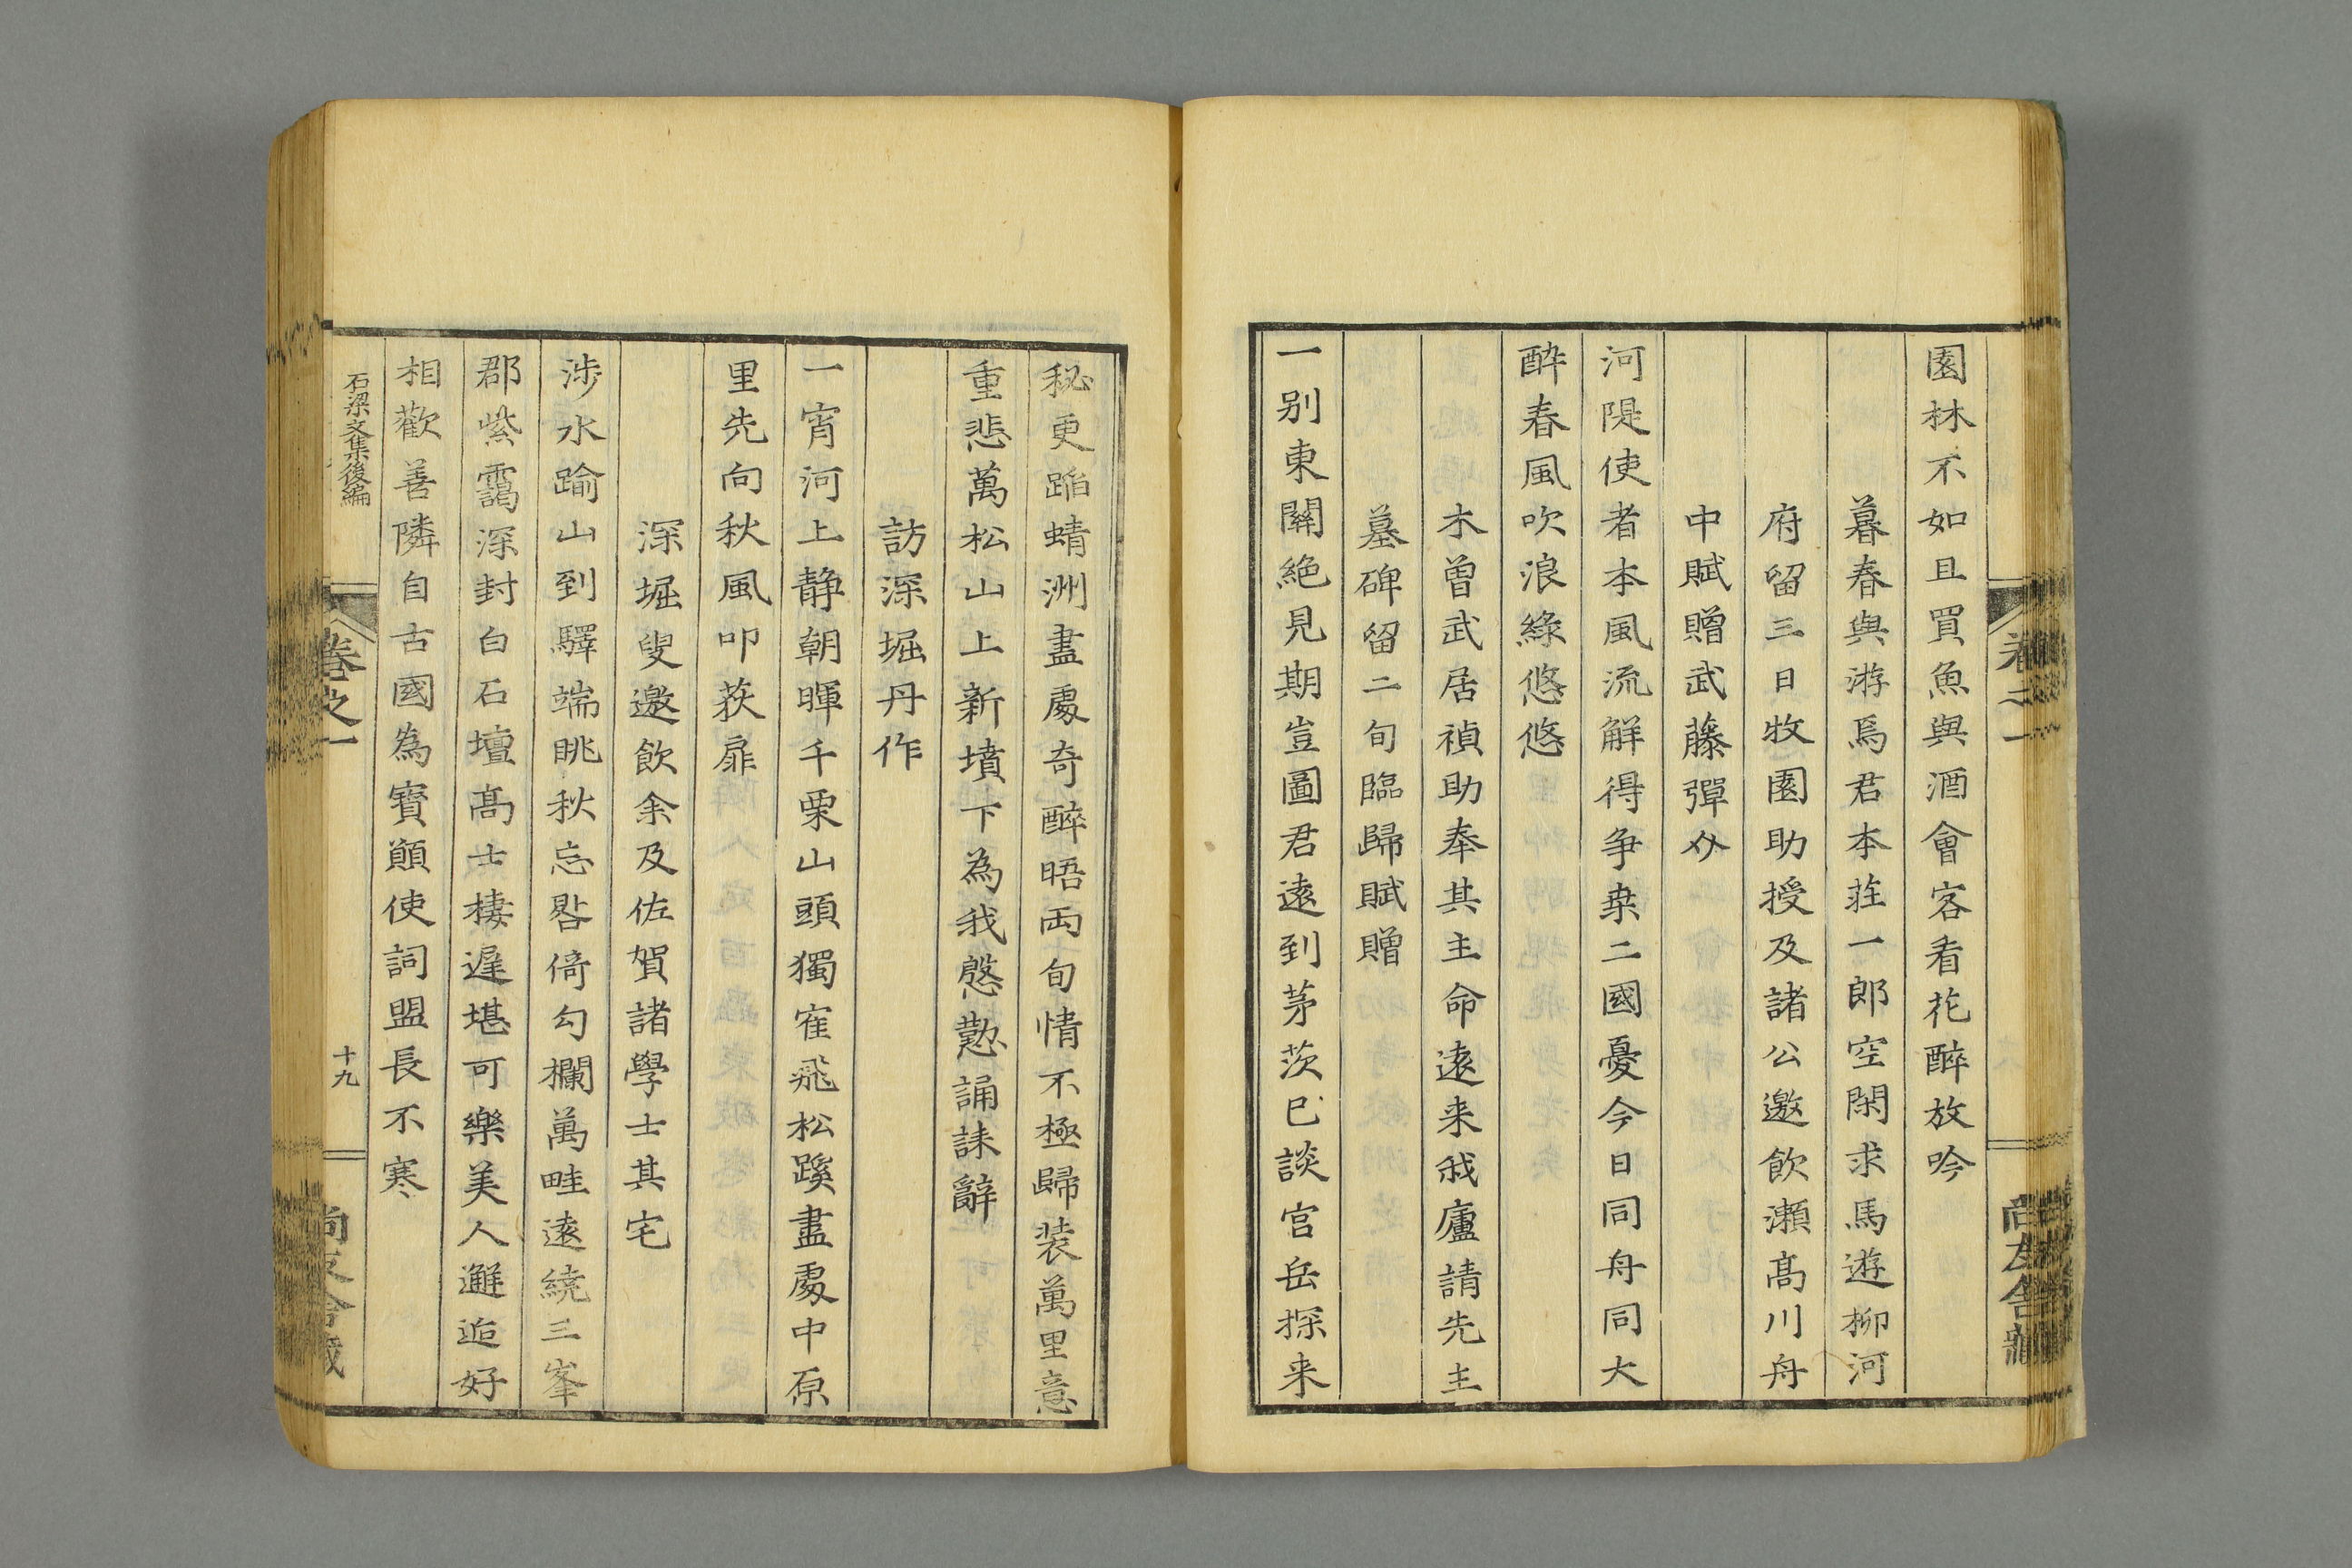 園林不如且買魚與酒會客看花醉放吟
暮春與游焉君本莊一郎空閑求馬遊柳河
府留三日牧園助授及諸公邀飲瀬髙川舟
中賦贈武藤彈
河隄使者本風流解得争桒二國憂今日同舟同大
酔春風吹浪綠悠悠
木曽武居禎助奉其主命遠来我廬請先主
墓碑留二旬臨歸賦贈
一别東關絶見期豈圖君遠到茅茨已談宫岳探来
秘更蹈蜻洲盡處奇醉晤両旬情不極歸装萬里意
重悲萬松山上新墳下為我慇懃誦誄辭
訪深堀丹作
一宵河上静朝暉千栗山頭獨寉飛松蹊盡處中原
里先向秋風叩荻扉
深堀叟邀飲余及佐賀諸學士其宅
渉水踰山到驛端眺秋忘晷倚勾欄萬畦遠繞三峯
郡紫靄深封白石壇髙士棲遲堪可樂美人邂逅好
相歡善隣自古國為寳顚使詞盟長不寒
石梁文集後編
卷之一
十九